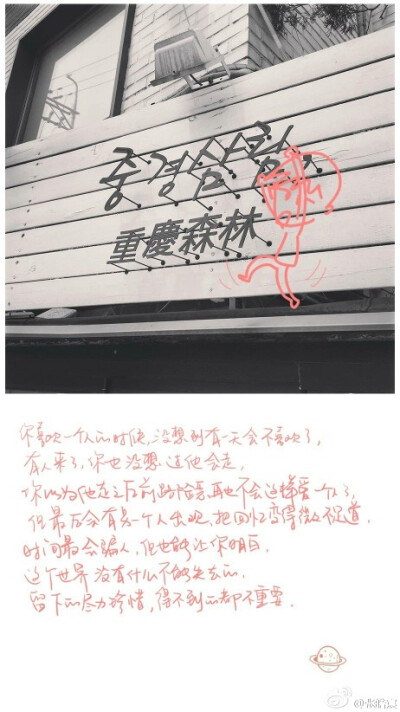 중경삼림
重慶森林
你喜欢一个人的时候,没想到有一天会不喜欢了,
有人来了,你也没想过他会走,
你以为他走之后前路恰再也不会这样爱一个人了,
但最后会有另一个人出现,把回忆变得微不足道.
时间最会骗人,但也能让你明白,
这个世界没有什么不能失去的.
留下的尽力珍惜,得不到的都不重要.